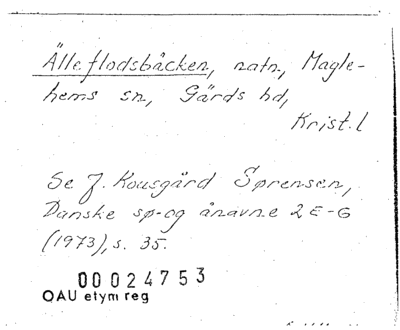 Älleflodsbäcken, natn, Magle-
hems sn, Gärds hd,
Krist. l
Se J. Kousgård Sørensen,
Danske sø- og ånavne 2 E-G
(1973), s. 35.
00024753
OAU etym reg